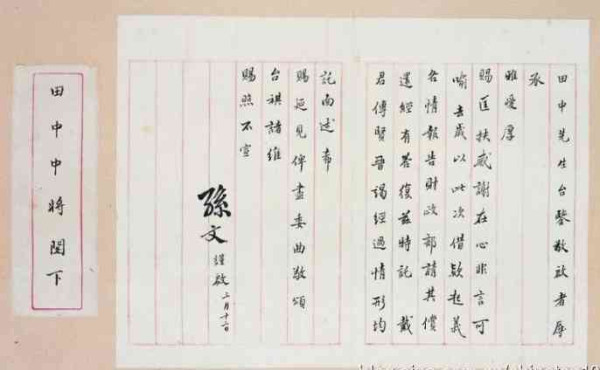 田中先生台鑒敬啟者辱
承
雅愛厚
賜匡扶感謝在心非言可
喻去歲以此次借款起義
各情報告財政部請其償
還經有答復茲特託戴
君傳賢晉謁經過情形均
託面述希
賜延見俾盡委曲敬頌
台祺諸維
賜照不宣
孫文謹啟
田中中將閣下